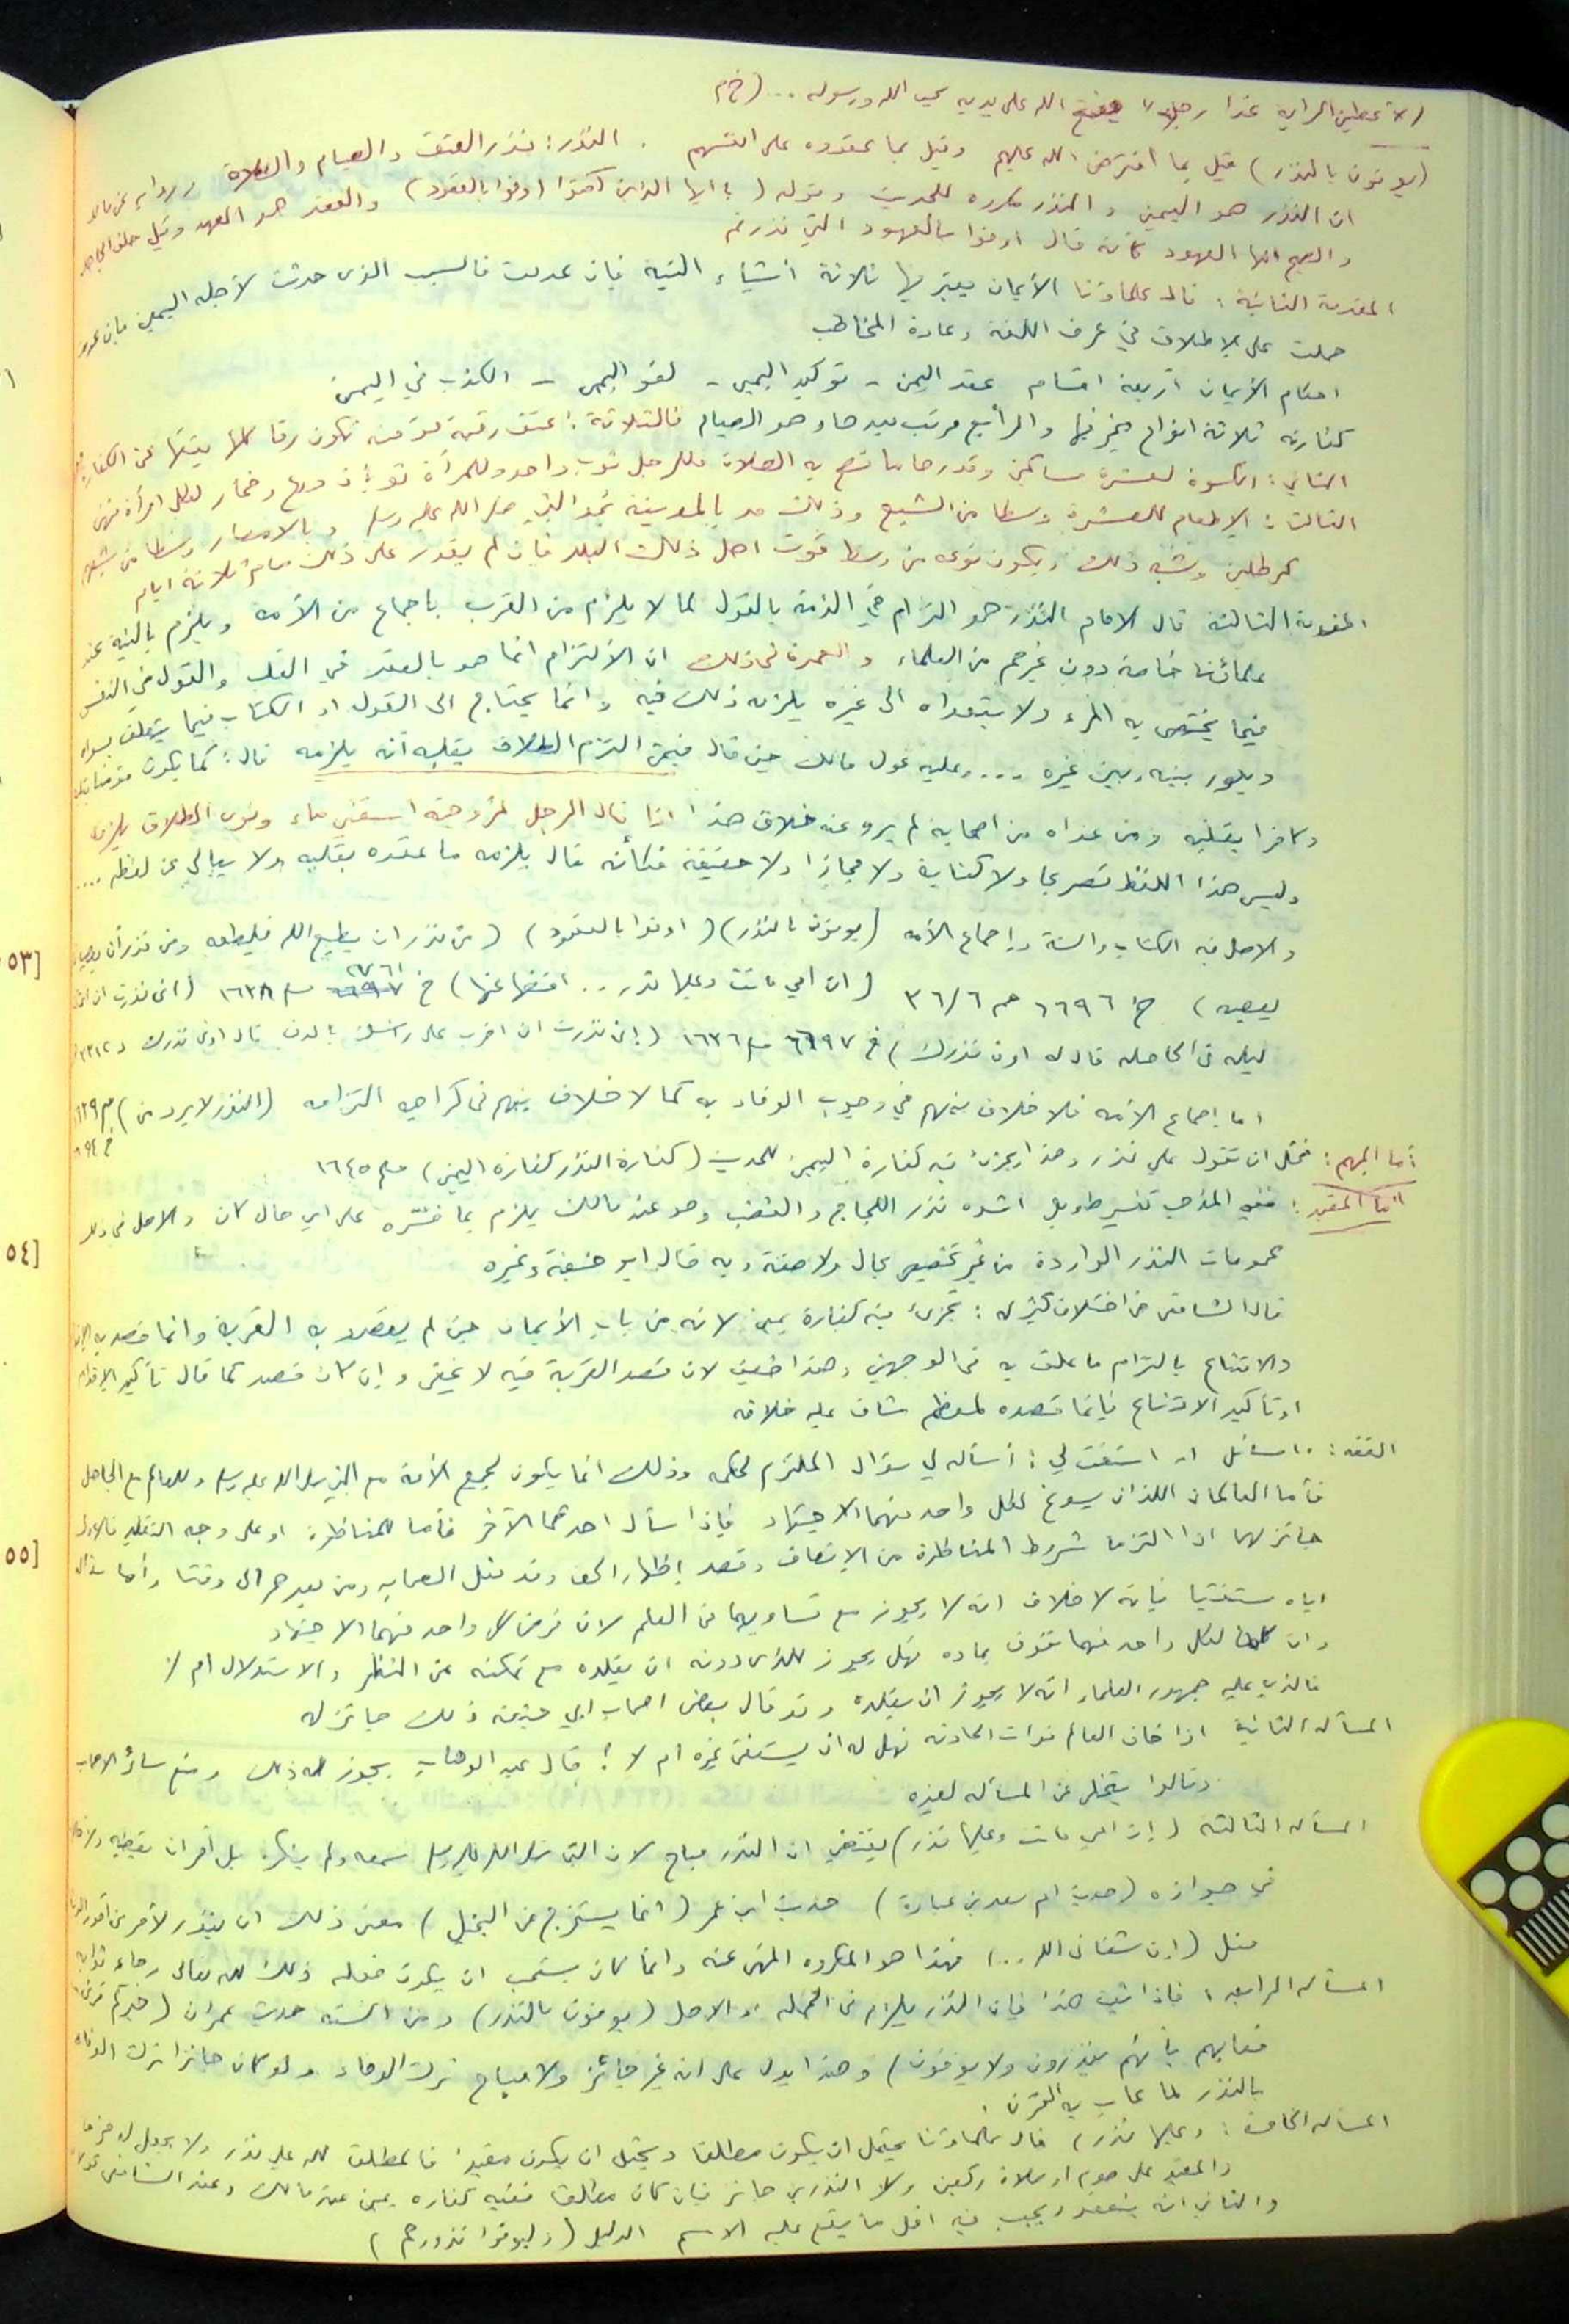 (لأعطين الراية غدا رجلا يفتح الله على يديه يحب الله ورسوله ... (خ م
(يوفون بالنذر) قيل بما افترض الله عليهم وقيل بما عقدوه على انفسهم . النذر: نذر العتق والصيام والصلاة
ان النذر هو اليمين والنذر مكروه للحديث وقوله (يا ايها الذين آمنوا اوفوا بالعقود) والعقد هو العهد وقيل حلف
والصحيح انها العهود كأنه قال اوفوا بالعهود التي نذرتم
المقدمة الثانية: قال علماؤنا الأيمان يعتبر فيها ثلاثة أشياء النية فإن عدمت فالسبب الذي حدثت لأجله اليمين فإن عدم
حملت على الإطلاق في عرف اللغة وعادة المخاطب
احكام الأيمان أربعة اقسام عقد اليمين - توكيد اليمين - لغو اليمين - الكذب في اليمين
كفارته ثلاثة انواع يخير فيها والرابع مرتب بعدها وهو الصيام فالثلاثة: عتق رقبة مؤمنة تكون رقا كلها يعتقها عن الكفارة
الثاني: الكسوة لعشرة مساكين وقدرها ما تصح به الصلاة فللرجل ثوب واحد وللمرأة ثوبان درع وخمار لكل امرأة منهن
الثالث: الإطعام للعشرة وسطا من الشبع وذلك مد بالمدينة بمد النبي صلى الله عليه وسلم وبالامصار وسطا من شبعهم
كرطلين وشبه ذلك ويكون نوعه من وسط قوت اهل ذلك البلد فإن لم يقدر على ذلك صام ثلاثة ايام
المقدمة الثالثة قال الامام النذر هو التزام في الذمة بالقول لما لا يلزم من القرب بإجماع من الأمه ويلزم بالنية عند
علمائنا خاصة دون غيرهم من العلماء والعمدة في ذلك ان الالتزام انما هو بالعقد في القلب والقول في النفس
فيما يختص به المرء ولا يتعداه الى غيره يلزمه ذلك فيه وانما يحتاج الى القول او الكتاب فيما يتعلق بسواه
ويدور بينه وبين غيره .... وعليه عول مالك حين قال فيمن التزم الطلاق بقلبه أنه يلزمه قال: كما يكون مؤمنا بقلبه
وكافرا بقلبه ومن عداه من اصحابه لم يرو عنه خلاف هذا اذا قال الرجل لزوجته اسقني ماء ونوى الطلاق يلزمه
وليس هذا اللفظ تصريحا ولا كناية ولا مجازا ولا حقيقة فكأنه قال يلزمه ما عقده بقلبه ولا يبالي عن لفظه ....
والاصل فيه الكتاب والسنة وإجماع الأمه (يوفون بالنذر) (اوفوا بالعقود) (من نذر ان يطيع الله فليطعه ومن نذر أن يعصيه
يعصيه) خ ٦٦٩٦ حم ٣٦/٦ (ان امي ماتت وعليها نذر .. اقضه عنها) خ ٢٧٦١ م ١٦٣٨ (اني نذرت ان اعتكف
ليله في الجاهلية قال له اوف بنذرك) خ ٦٦٩٧ م ١٦٥٦ (إني نذرت ان اضرب على رأسك بالدف قال اوفي بنذرك د ٣٣١٢)
اما إجماع الأمه فلا خلاف بينهم في وجوب الوفاء به كما لا خلاف بينهم في كراهية التزامه (النذر لا يرد من) م ١٦٣٩
أما المبهم: فمثل ان تقول علي نذر وهذا يجزئ فيه كفارة اليمين للحديث (كفارة النذر كفارة اليمين) م ١٦٤٥
أما المقيد: ففي المذهب تفسير طويل اشده نذر اللجاج والغضب وهو عند مالك يلزم بما فسره على اي حال كان والاصل في ذلك
عمومات النذر الواردة من غير تخصيص بحال ولا صفة وبه قال ابو حنيفة وغيره
قال الشافعي في اختلاف كثير له: تجزئ فيه كفارة يمين لانه من باب الأيمان حين لم يقصد به القربة وانما قصد به
والامتناع بالتزام ما علق به في الوجهين وهذا ضعيف لان قصد القربة فيه لا يخفى وإن كان قصد كما قال تأكيد الإقدام
او تأكيد الامتناع فإنما قصده لمعظم شاق عليه خلافه
الفقه: ١٠ مسائل ١- استفتى لي: أسأله لي سؤال الملتزم لحكمه وذلك انما يكون لجميع الأمة مع النبي صلى الله عليه وسلم وللعالم مع الجاهل
فأما العالمان اللذان يسوغ لكل واحد منهما الاجتهاد فإذا سأل احدهما الآخر فأما للمناظرة او على وجه التقليد فالاول
جائز لهما اذا التزما شروط المناظرة من الإنصاف وقصد إظهار الحق وقد فعل الصحابه ومن بعدهم الى وقتنا وأما سؤال
اياه مستفتيا فإنه لا خلاف انه لا يجوز مع تساويهما في العلم لان فرض كل واحد منهما الاجتهاد
وان كان لكل واحد منهما تفوق بماده فهل يجوز للذي دونه ان يقلده مع تمكنه من النظر والاستدلال ام لا
فالذي عليه جمهور العلماء انه لا يجوز ان يقلده وقد قال بعض اصحاب ابي حنيفة ذلك جائز له
المسأله الثانية اذا خاف العالم فوات الحادثه فهل له ان يستفتي غيره ام لا؟ قال عبد الوهاب يجوز له ذلك ومنع سائر الاصحاب
وقالوا يتخلى عن المسأله لغيره
المسأله الثالثه (إن امي ماتت وعليها نذر) يقتضي ان النذر مباح لان النبي صلى الله عليه وسلم سمعه ولم ينكره بل أقر ان يقضيه ولا خلاف
في جوازه (حديث ام سعد بن عبادة) حديث ابن عمر (انما يستخرج من البخيل) معنى ذلك ان ينذر لأمر من أمور الدنيا
مثل (إن شفاني الله ..) فهذا هو المكروه المنهي عنه وانما كان يستحب ان يكون فعله ذلك لله تعالى رجاء ثوابه
المسأله الرابعة: فاذا ثبت هذا فإن النذر يلزم في الجملة والاصل (يوفون بالنذر) ومن السنه حديث عمران (خيركم قرني..
فعابهم بأنهم ينذرون ولا يوفون) وهذا يدل على انه غير جائز ولا مباح ترك الوفاء ولو كان جائزا ترك الوفاء
بالنذر لما عاب به القرن.
المسأله الخامسة: (وعليها نذر) قال علماؤنا يحتمل ان يكون مطلقا ويحتمل ان يكون مقيدا فالمطلق لله علي نذر ولا يجعل له مخرجا
والمقيد على صوم او صلاة ركعتين وكلا النذرين جائز فإن كان مطلقا ففيه كفارة يمين عند مالك وعند الشافعي قولان
والثاني انه ينعقد ويجب فيه اقل ما يقع عليه الاسم الدليل (وليوفوا نذورهم)
٥٣]
٥٤]
٥٥]